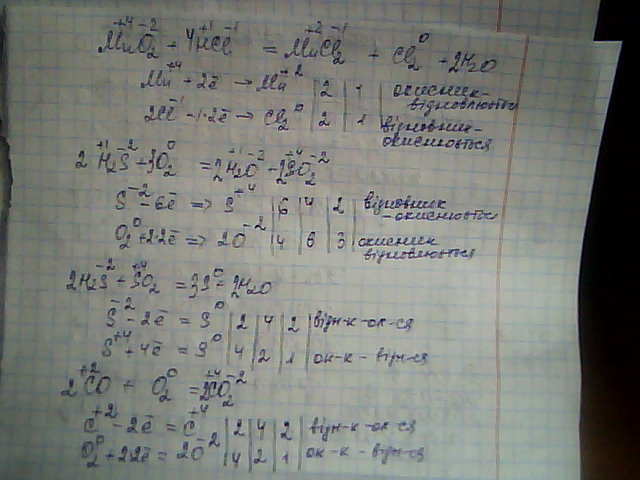 +4 -2 +1 -1 +2 -1 0
MnO₂ + 4HCl = MnCl₂ + Cl₂ + 2H₂O
Mn⁺⁴ + 2ē → Mn⁺² | 2 | 1 | окисник-
відновлюється
2Cl⁻¹ - 1·2ē → Cl₂⁰ | 2 | 1 | відновник-
окиснюється
+1 -2 0 +1 -2 +4 -2
2H₂S + 3O₂ = 2H₂O + 2SO₂
S⁻² - 6ē => S⁺⁴ | 6 | 4 | 2 | відновник
- окиснюється
O₂⁰ + 2·2ē => 2O⁻² | 4 | 6 | 3 | окисник
відновлюється
-2 +4 0
2H₂S + SO₂ = 3S + 2H₂O
S⁻² - 2ē = S⁰ | 2 | 4 | 2 | відн-к-ок-ся
S⁺⁴ + 4ē = S⁰ | 4 | 2 | 1 | ок-к - відн-ся
+2 0 +4 -2
2CO + O₂ = 2CO₂
C⁺² - 2ē = C⁺⁴ | 2 | 4 | 2 | відн-к-ок-ся
O₂⁰ + 2·2ē = 2O⁻² | 4 | 2 | 1 | ок-к - відн-ся